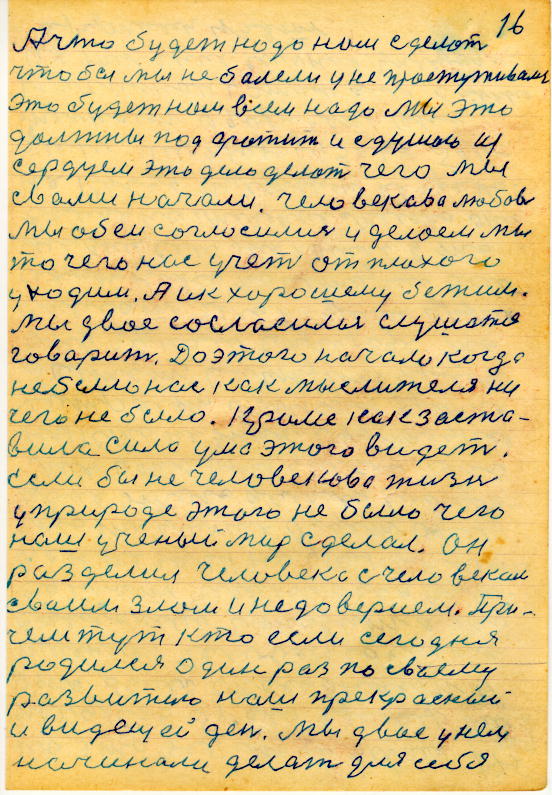 16
А что будет надо нам сделат
что бы мы не балели и не простуживали
это будет нам всем надо мы это
должны под фотит и сдушою и
сердцем это дело делат чего мы
свами начали. человекава любов
мы обеи согласилия и делаем мы
то чего нас учет от плохого
уходим. А и к хорошему бежим.
мы двое согласилия слушатся
говарит. До этого начало когда
небыло нас как мыслителя ни
чего не было. Кроме как заста-
вила сила ума этого видет.
если бы не человекова жизн
у природе этого не было чего
наш ученый мир сделал. Он
разделил человека с человекам
сваим злом и недоверием. При-
чем тут кто если сегодня
родился один раз по сваему
развитию наш прекрасный
и видещей ден. Мы двае у нем
начинали делат для себя